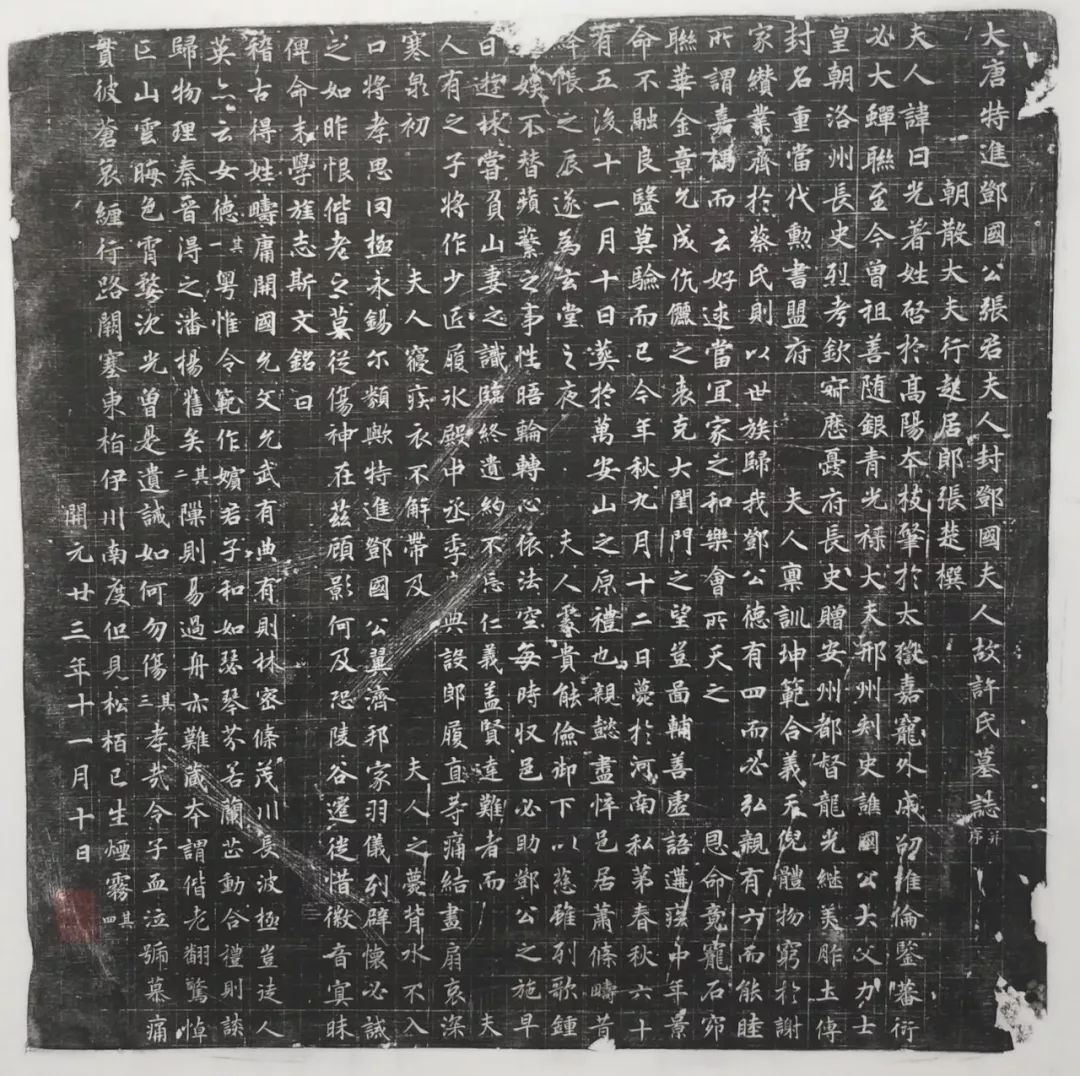 大唐特進鄧國公張君夫人封鄧國夫人故許氏墓誌并序
朝散大夫行起居郎張楚撰
夫人諱日光著姓啓於高陽夲枝肇於太嶽嘉寵外戚初惟倫鑒蕃衍
必大蟬聯至今曾祖善隨銀青光祿大夫邢州刺史譙國公大父力士
皇朝洛州長史烈考欽寂應夔府長史贈安州都督龍光継美胙土傳
封名重當代勲書盟府 夫人禀訓坤範合義天倪體物窮於謝
家纘業齊於蔡氏則以世族歸我鄧公德有四而必弘親有六而能睦
所謂嘉耦而云好逑當宜家之和樂會所天之 恩命竟寵石窌
聯華金章允成伉儷之表克大閨門之望豈啚輔善虛語遘疾中年景
命不融良醫莫驗而已今年秋九月十二日薨於河南私第春秋六十
有五浚十一月十日葬於萬安山之原禮也親懿盡悴邑居蕭條疇昔
帳之辰遂為玄堂之夜 夫人處貴能儉御下以慈雖列歌鍾
娛不替蘋蘩之事性晤輪轉心依法空每時収邑必助鄧公之施早
日遊林嘗負山妻之識臨終遺約不忘仁義蓋賢達難者而 夫
人有之子將作少匠履氷殿中丞季 典設郎履直等痛結晝扇哀深
寒泉初 夫人寢疾衣不解帶及 夫人之薨背水不入
口將孝思罔極永錫尔類歟特進鄧國公翼濟邦家羽儀列辟懷必誠
之如昨恨偕老之莫從傷神在茲顧影何及恐陵谷遷徙惜徽音寘昧
俾命末學旌志斯文銘曰
稽古得姓疇庸開國允文允武有典有則林密條茂川長波極豈徒人
英亦云女德其一粵惟令範作嬪君子和如瑟琴芬若蘭芷動合禮則談
歸物理秦晉得之潘楊舊矣其二隟則易過舟亦難藏夲謂偕老翻驚悼
亡山雲晦色霄婺沈光曾是遺誡如何勿傷其三孝哉令子血泣號慕痛
貫彼蒼哀纏行路闕塞東指伊川南度但見松栢已生煙霧其四
開元廿三年十一月十日